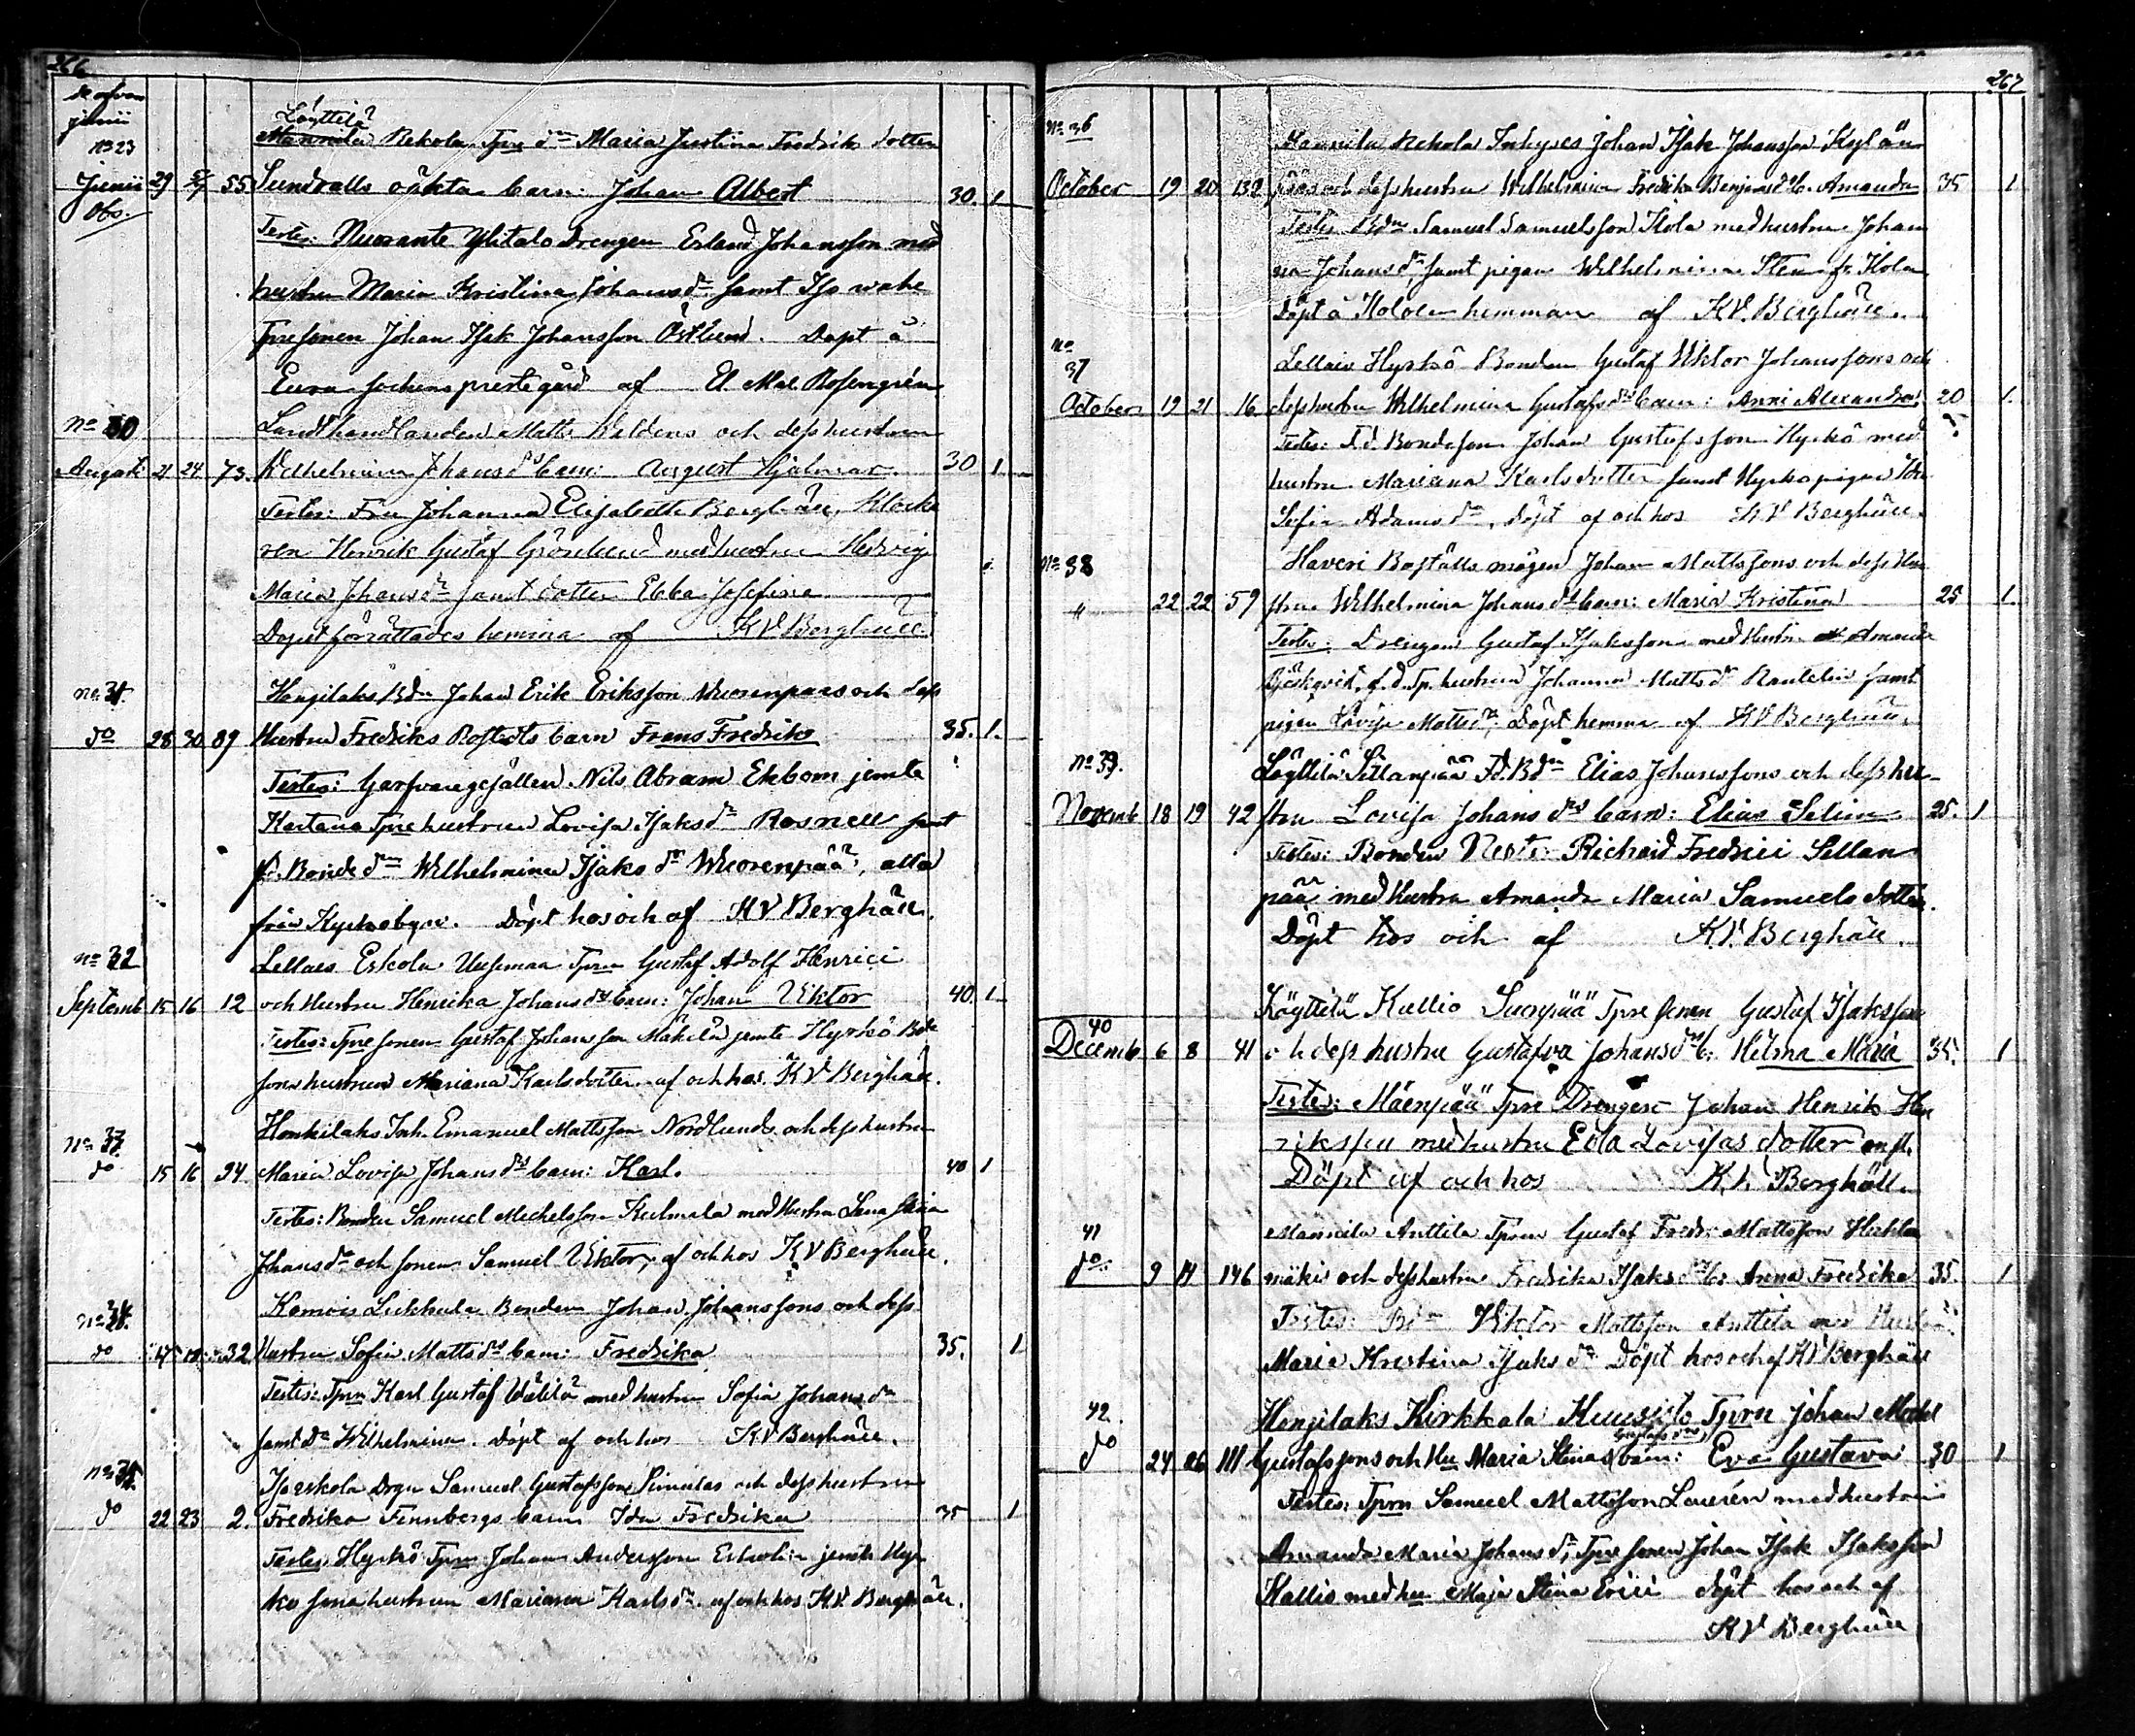 266
Löyttilä
junii
Mannila Rekola Tprs dr Maria Justina Fredriks dotter
No 23
Junii 29 5/7 55 Sundvalls oäkta barn: Johan Albert 30. 1
Obs.
Testes: Nuorante Ylitalo Drengen Erland Johansson med
hustru Maria Kristina Johansdr samt
Johan Isak Johansson Östlund. Döpt å
Eura sockens prestegård af El. Mal. Rosengrén
No 30
Landthandlanden Matts och dess hustru
Augusti 21 24 73. Wilhelmina Johansdrs barn: August Hjalmar 30 1
Testes: Fru Johanna Elisabeth Berghäll, Klocka
ren Henrik Gustaf Grönlund med hustru Hedvig
Maria Johansdr samt dotter Ebba Josefina
Dopet förrättades hemma af K V Berghäll
No 31.
Honjilaks Bdn Johan Erik Eriksson Wuorenpääs och dess
do 28 30 89 Hustru Fredrika Rostedts barn Frans Fredrik 35. 1.
Testes: Garfvaregesällen Nils Abram Ekbom jemte
Kartano Tprehustrun Lovisa Isaksdr Rosnell samt
fd. Bonde dr Wilhelmina Isaksdr Wuorenpää, alla
från Kyrkobyn. Döpt hos och af K V Berghäll.
No 32
Lellais Eskola Uusimaa Tprn Gustaf Adolf Henrici
Septemb 15 16 12 och Hustru Henrika Johansdrs barn: Johan Viktor 40. 1
Testes: Tpresonen Gustaf Johansson Mäkilä jemte Hyrkö Bde
sonshustrun Mariana Karlsdotter. af och hos K V Berghäll.
No 33
Honkilaks Inh. Emanuel Mattsson Nordlunds och dess hustru
do 15 16 94. Maria Lovisa Johansdrs barn: Karl. 40 1
Testes: Bonden Samuel Michelsson Kulmala med Hustru Lena Stina
Johansdr och sonen Samuel Viktor, af och hos K V Berghäll.
No 34.
Kamois Liekkala Bonden Johan Johanssons och dess
do 17 18 32 Hustru Sofia Mattsdrs barn: Fredrika 35. 1
Testes: Tprn Karl Gustaf Wälilä med hustru Sofia Johansdr
samt Dr Wilhelmina. Döpt af och hos K V Berghäll.
No 35.
Isoeskola Drgn Samuel Gustafsson Simulas och dess hustru
do 22 23 2. Fredrika Finnbergs barn Ida Fredrika 35 1
Testes: Hyrkö Tprn Johan Andersson Eskolin jemte Hyr
kö sonshustrun Mariana Karlsdr. af och hos K.V. Berghäll.
267
No 36
Mannila Rekola Inhyses Johan Isak Johansson Kylän
October 19 20 132 pääs och dess hustru Wilhelmina Fredrika Benjamsdrs b. Amanda 35 1
Testes Bdn Samuel Samuelsson Kola med hustru Johan
na Johansdr, samt pigan Wilhelmina Sten fr. Kola
Döpt å Kolola hemman af K V. Berghäll.
No
37
Lellais Hyrkö Bonden Gustaf Viktor Johanssons och
October 19 21 16 dess hustru Wilhelmina Gustafsdrs barn: Anni Alexandra 20 1.
Testes: F.d. Bondeson Johan Gustafsson Hyrkö med
hustru Mariana Karlsdotter samt Hyrkö pigan
Sofia Adamsdr, döpt af och hos K V Berghäll.
No 38
Haveri Boställs mågen Johan Mattssons och dess Hu
" 22 22 59 stru Wilhelmina Johansdrs barn: Maria Kristina 25 1.
Testes: Drengen Gustaf Isaksson med Hustru Amanda
Björkqvist, f.d. Tp. hustrun Johanna Mattsdr Rantelin samt
pigan Lovisa Mattsdr, Döpt hemma af K V Berghäll.
No 39.
Löyttilä Sillanpää F.d. Bdn Elias Johanssons och dess hu-
Novemb 18 19 42 stru Lovisa Johansdrs barn: Elias Selim 25. 1
Testes: Bonden Nestor Richard Fredrici Sillan
pää med hustru Amanda Maria Samuelsdotter.
Döpt hos och af K.V. Berghäll.
Löyttilä Kallio Suonpää Tpresonen Gustaf Isaksson
40
Decemb 6 8 41 och dess hustru Gustafva Johansdrs b: Hilma Maria 35. 1
Testes: Mäenpää Tpre Drengen Johan Henrik Hen
riksson med hustru Eda Lovisas dotter
Döpt af och hos K.V. Berghäll.
41
Mannila Anttila Tprn Gustaf Fredr: Mattsson Hahlan
do 9 14 146 mäkis och dess hustru Fredrika Isaksdrs b: Anna Fredrika 35. 1
Testes: Bdn Viktor Mattsson Anttila med Hustru
Maria Kristina Isaksdr Döpt hos och af K V Berghäll
42.
Honjilaks Kirkkala Kuusisto Tprn Johan Mickel
Gustafsdrs
do 24 26 111 Gustafssons och Hu Maria Stinas barn: Eva Gustava 30 1
Testes: Tprn Samuel Mattsson Laurén med hustru
Amanda Maria Johansdr, Tpre sonen Johan Isak Isaksson
Kallio med hu Maja Stina Erici döpt hos och af
K V Berghäll